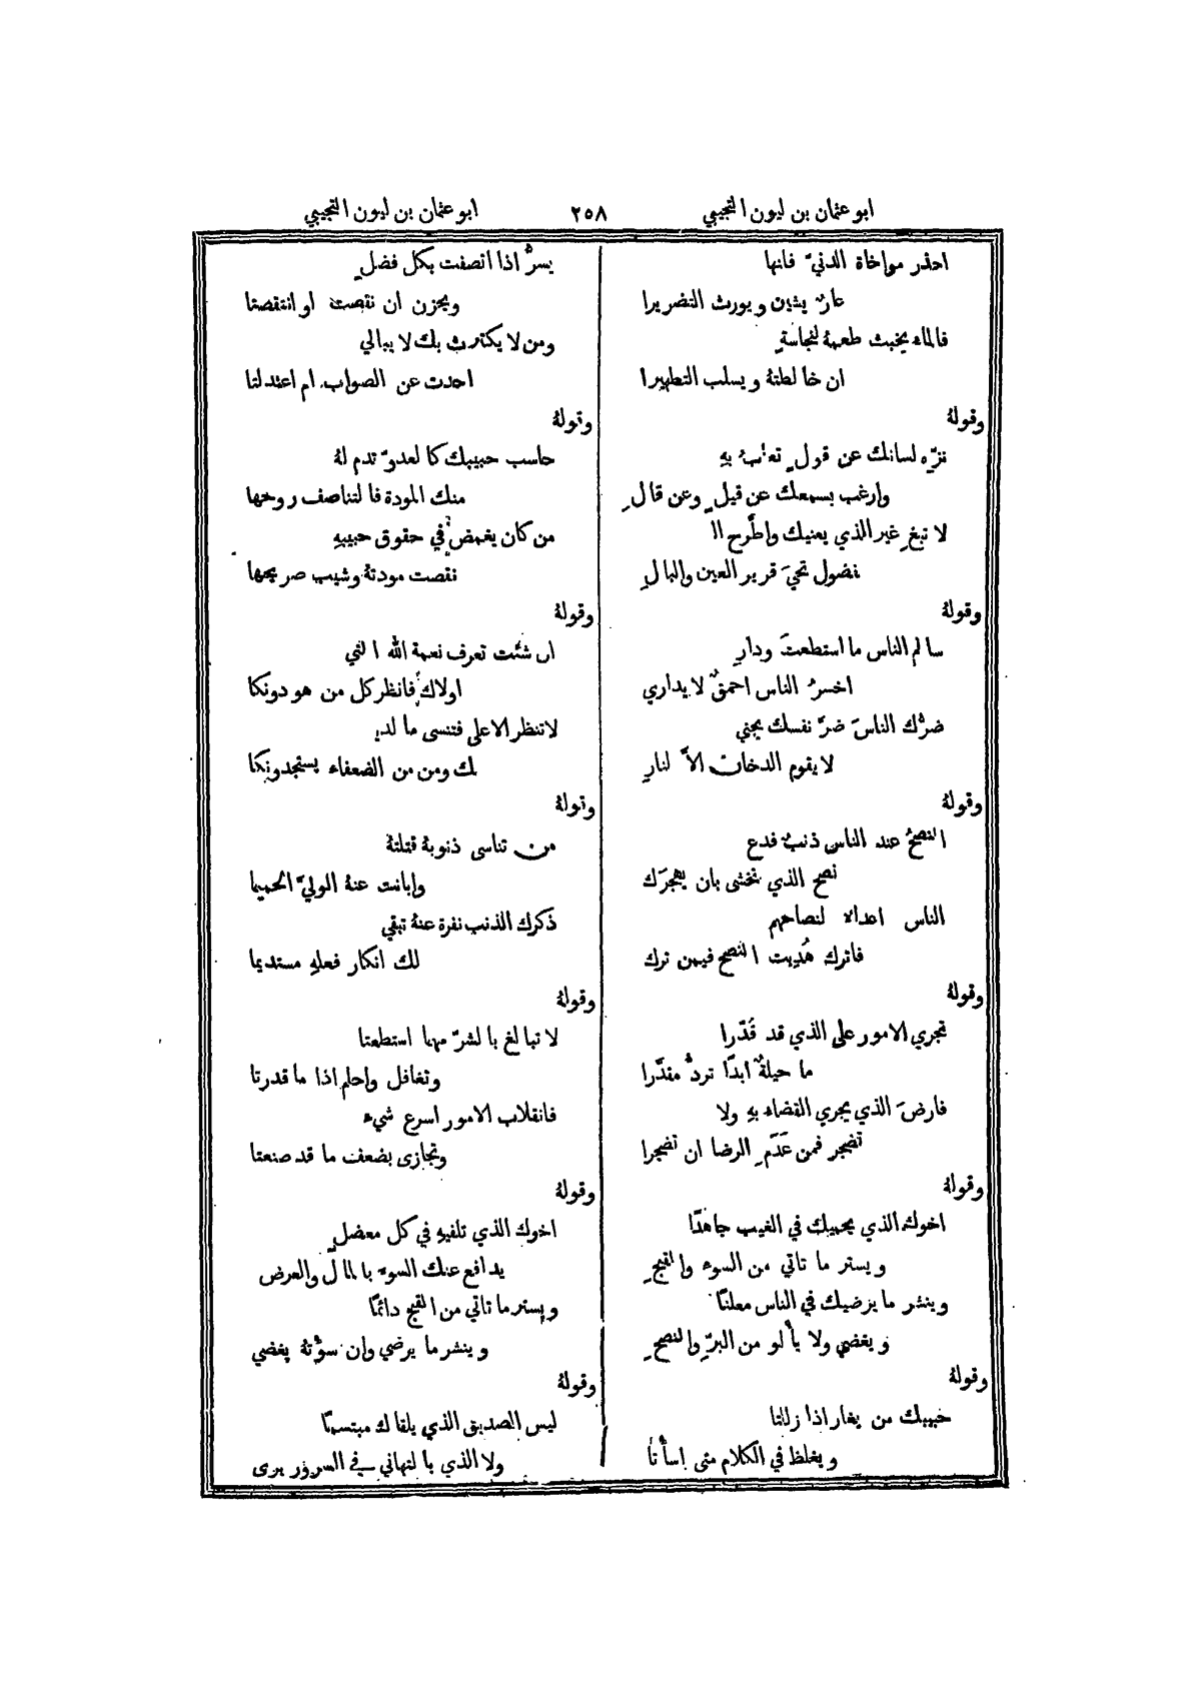 ابو عثمان بن ليون التجيبي
٢٥٨
ابو عثمان بن ليون التجيبي
احذر مواخاة الدنيّ فانها
عارٌ يشين ويورث التضريرا
فالماء يخبث طعمهُ لنجاسةٍ
ان خالطتهُ ويسلب التطهيرا
وقولهُ
نزّه لسانك عن قولٍ تعابُ بهِ
وارغب بسمعك عن قيلٍ وعن قالِ
لا تبغِ غير الذي يعنيك واطَّرح ال
فضول تحيَ قرير العين والبالِ
وقولهُ
سالم الناس ما استطعتَ ودارِ
اخسرُ الناس احمقٌ لا يداري
ضرُّك الناسَ ضرَّ نفسك يجني
لا يقوم الدخان الاَّ لنارِ
وقولهُ
النصحُ عند الناس ذنبٌ فدع
نصح الذي تخشى بان يهجرَك
الناس اعداء لنصاحهم
فاترك هُدِيت النصح فيمن ترك
وقولهُ
تجري الامور على الذي قد قُدّرا
ما حيلةٌ ابدًا تردُّ مقدَّرا
فارضَ الذي يجري القضاء بهِ ولا
تضجر فمن عَدَمِ الرضا ان تضجرا
وقولهُ
اخوك الذي يحميك في الغيب جاهدًا
ويستر ما تاتي من السوء والقبحِ
وينشر ما يرضيك في الناس معلنًا
ويغضي ولا يألو من البرِّ والنصحِ
وقولهُ
حبيبك من يغار اذا زللتا
ويغلظ في الكلام متى اسأتا
يسرُّ اذا اتصفت بكل فضلٍ
ويحزن ان نقصت او انتقصتا
ومن لا يكترث بك لا يبالي
احدت عن الصواب ام اعتدلتا
وقولهُ
حاسب حبيبك كالعدوّ تدم لهُ
منك المودة فالتناصف روحها
من كان يغمض في حقوق حبيبهِ
نقصت مودتهُ وشيب صريحها
وقولهُ
ان شئت تعرف نعمة الله التي
اولاك فانظر كل من هو دونكا
لا تنظر الاعلى فتنسى ما لديـ
ـك ومن من الضعفاء يستجدونكا
وقولهُ
من تناسى ذنوبهُ قتلتهُ
وابانت عنهُ الوليَّ الحميما
ذكرك الذنب نفرة عنهُ تبقي
لك انكار فعلهِ مستديما
وقولهُ
لا تبالغ بالشرّ مهما استطعتا
وتغافل واحلم اذا ما قدرتا
فانقلاب الامور اسرع شيء
وتجازى بضعف ما قد صنعتا
وقولهُ
اخوك الذي تلفيهِ في كل معضلٍ
يدافع عنك السوء بالمال والعرض
ويستر ما تاتي من القبح دائمًا
وينشر ما يرضي وان سؤتهُ يغضي
وقولهُ
ليس الصديق الذي يلقاك مبتسمًا
ولا الذي بالتهاني في السرور يرى